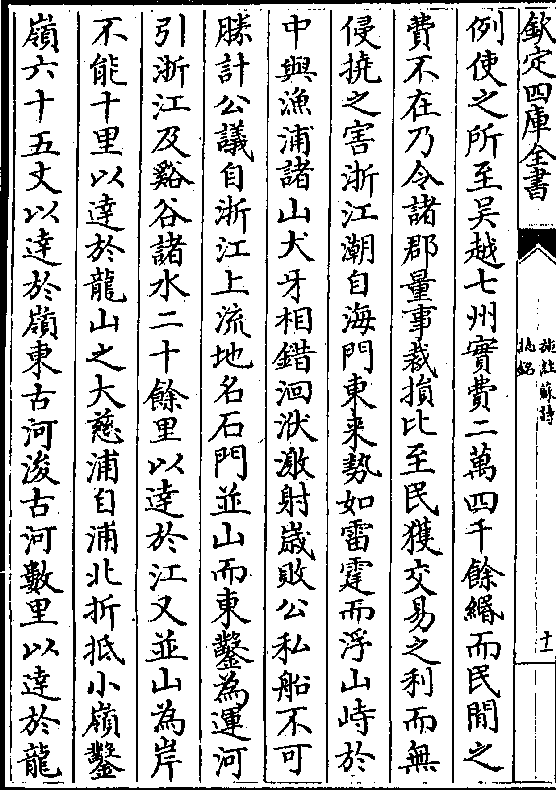 欽定四庫全書
施註蘇詩
十一
例使之所至吴越七州實費二萬四千餘緡而民間之
費不在乃令諸郡量事裁損比至民獲交易之利而無
侵撓之害浙江潮自海門東来勢如雷霆而浮山峙於
中與漁浦諸山犬牙相錯洄洑激射嵗敗公私船不可
勝計公議自浙江上流地名石門並山而東鑿為運河
引浙江及谿谷諸水二十餘里以達於江又並山為岸
不能十里以達於龍山之大慈浦自浦北折抵小嶺鑿
嶺六十五丈以達於嶺東古河浚古河數里以達於龍